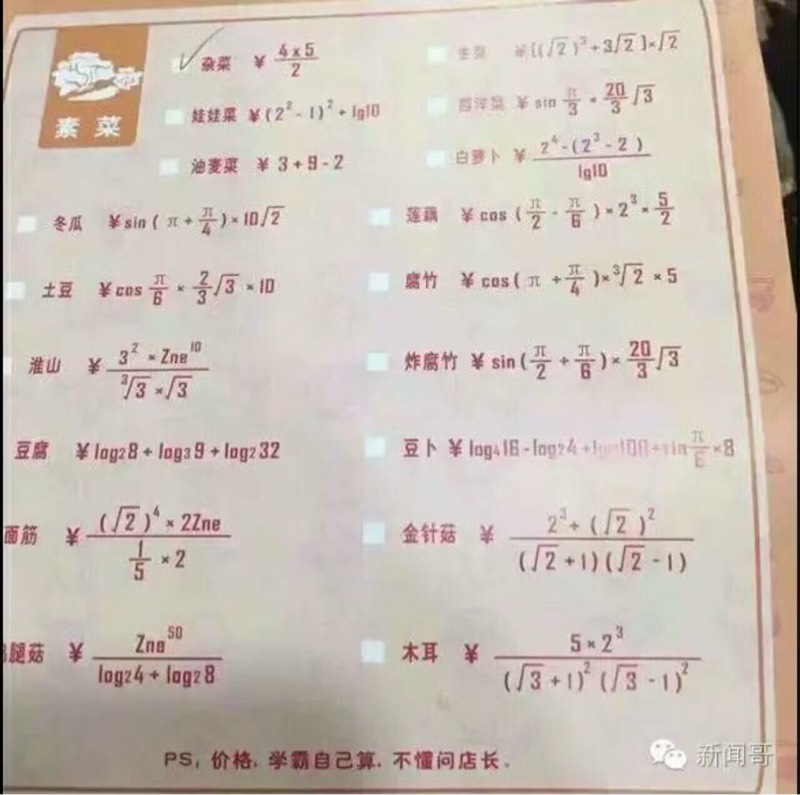 素菜
杂菜 ¥ 4×5/2
¥ [(√2)³+3√2]×√2
娃娃菜 ¥ (2²-1)²+lg10
西洋菜 ¥ sin π/3 × 20/3 √3
油麦菜 ¥ 3+9-2
白萝卜 ¥ 2⁴-(2³-2)/lg10
冬瓜 ¥ sin(π+π/4)×10√2
莲藕 ¥ cos(π/2-π/6)×2³×5/2
土豆 ¥ cos π/6 × 2/3 √3 ×10
腐竹 ¥ cos(π+π/4)×³√2×5
淮山 ¥ 3²×Zne¹⁰/³√3×√3
炸腐竹 ¥ sin(π/2+π/6)×20/3 √3
豆腐 ¥ log₂8+log₃9+log₂32
豆卜 ¥ log₄16-log₂4+lg100+sin π/6 ×8
面筋 ¥ (√2)⁴×2Zne/1/5×2
金针菇 ¥ 2³+(√2)²/(√2+1)(√2-1)
腿菇 ¥ Zne⁵⁰/log₂4+log₂8
木耳 ¥ 5×2³/(√3+1)²(√3-1)²
PS，价格，学霸自己算，不懂问店长。
新闻哥